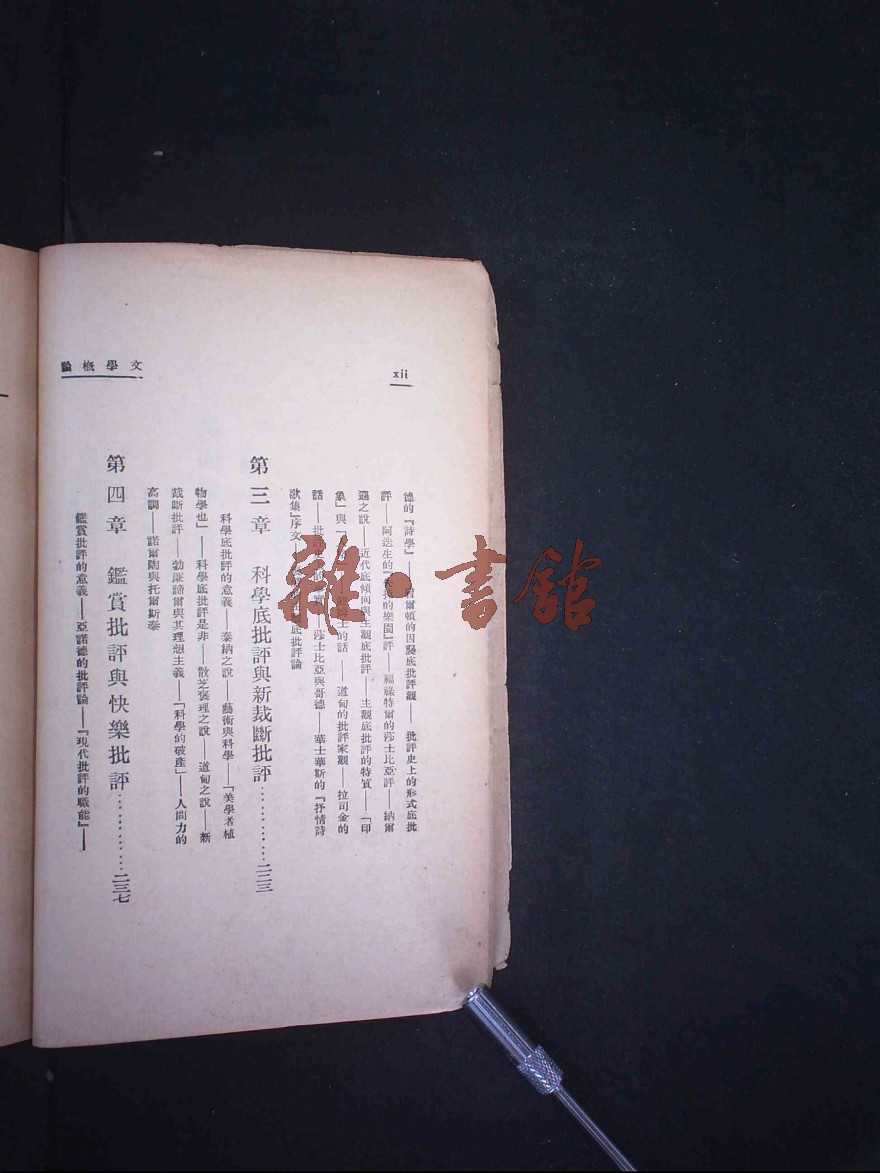 文學概論
xii
德的『詩學』——看爾頓的因襲底批評觀——批評史上的形式底批
評——阿迭生的『失掉的樂園』評——福祿特爾的莎士比亞評——納爾
遜之說——近代底傾向與主觀底批評——主觀底批評的特質——「印
象」與「 士的話——道甸的批評家觀——拉司金的
話——批評史 ——莎士比亞與哥德——華士華斯的『抒情詩
歌集』序文—— 底批評論
第三章 科學底批評與新裁斷批評…………二二三
科學底批評的意義——泰納之說——藝術與科學——「美學者植
物學也」——科學底批評是非——散芝褒理之說——道甸之說——新
裁斷批評——勃廉諦爾與其理想主義——「科學的破產」——人間力的
高調——諾爾陶與托爾斯泰
第四章 鑑賞批評與快樂批評…………二三七
鑑賞批評的意義——亞諾德的批評論——『現代批評的職能』——
雜·書館